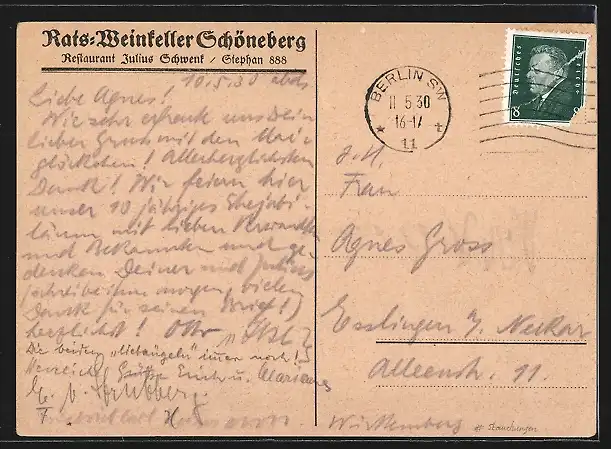 Rats-Weinkeller Schöneberg
Restaurant Julius Schwenk / Stephan 888
10.5.30 abds
Liebe Agnes!
Wie sehr erfreute uns Dein
lieber Gruss mit den Mai-
glöckchen! Allerherzlichsten
Dank! Wir feiern hier
unser 10 jähriges Ehejubi-
läum mit lieben Verwandten
und Bekannten und ge-
denken Deiner und Julius
(schreibe ihm morgen, vielen
Dank für seinen Brief!)
herzlichst! Otto
Die beiden "liebäugeln" immer noch!
Erich u. Marianne
BERLIN SW
11 5.30
16-17
* 11 t
Deutsches Reich
8
z. H.
Frau
Agnes Gross
Esslingen a/ Neckar
Alleenstr. 11.
Württemberg